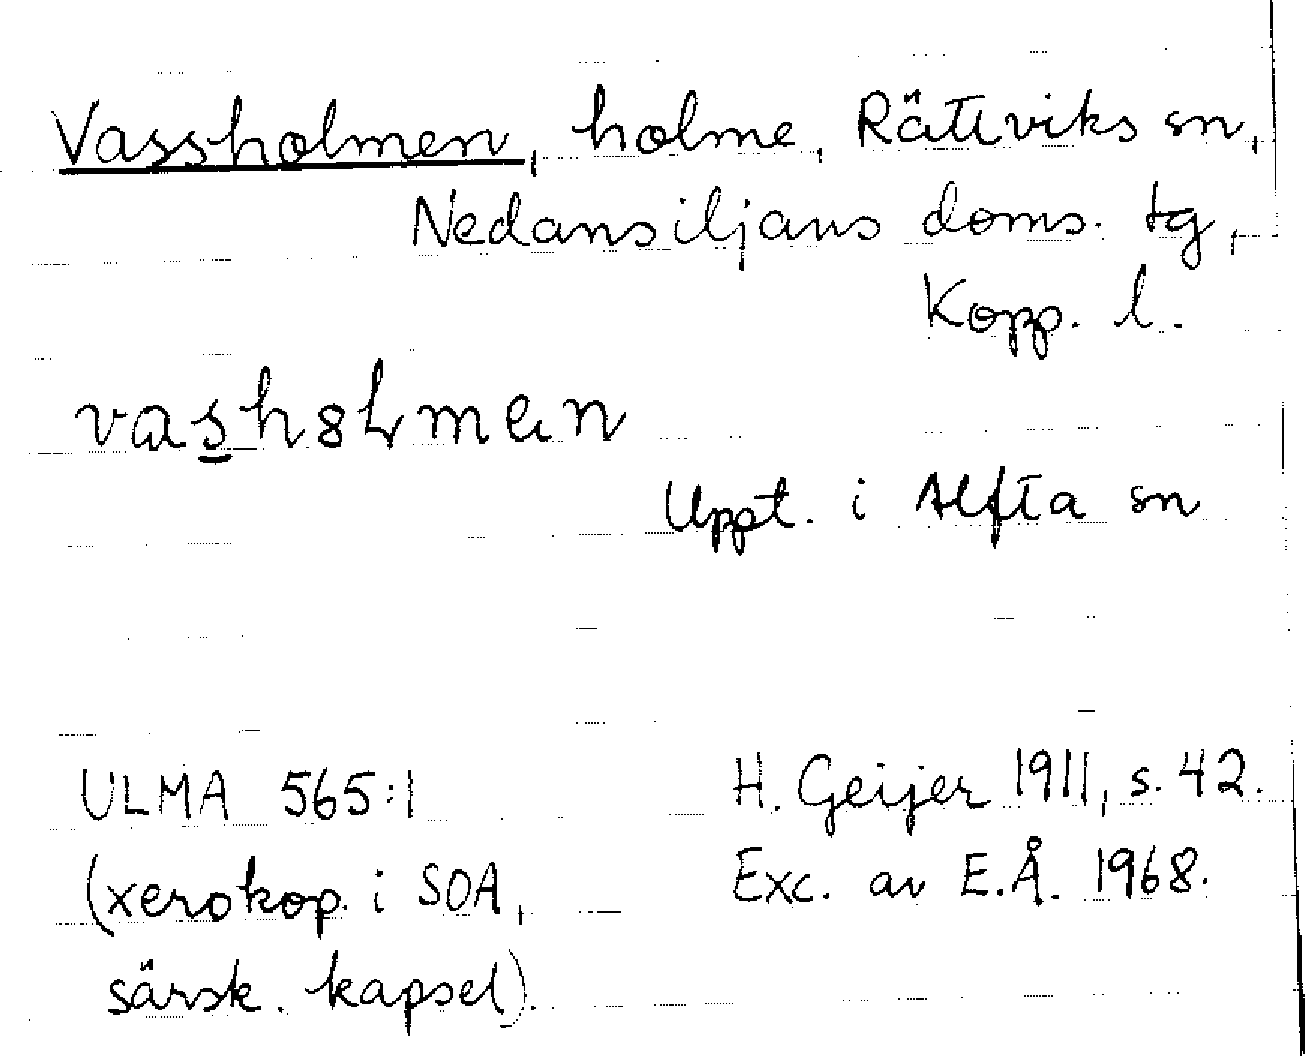 Vassholmen, holme, Rättviks sn,
Nedansiljans doms. tg,
Kopp. l.
vash8łmen
Uppt. i Alfta sn
ULMA 565:1
H. Geijer 1911, s. 42.
(xerokop. i SOA,
Exc. av E.Å. 1968.
särsk. kapsel).